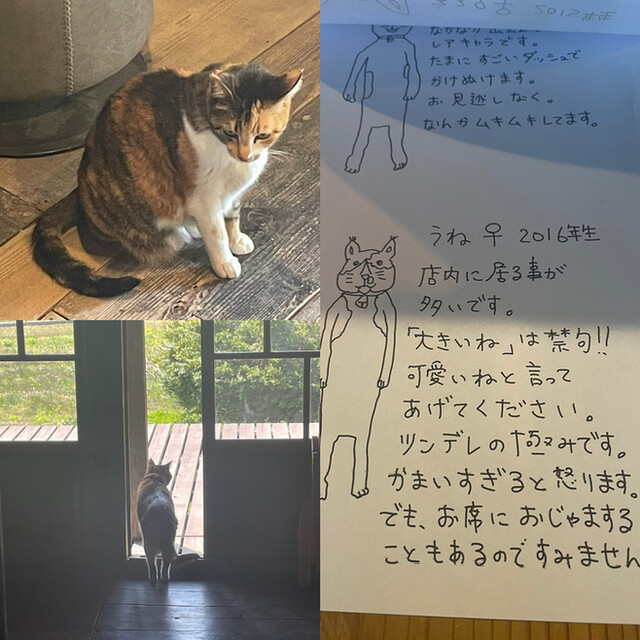 2012年生
レアキャラです。
たまに すごいダッシュで
かけぬけます。
お見逃しなく。
なんかムキムキしてます。
うね ♀ 2016年生
店内に居る事が
多いです。
「大きいね」は禁句!!
可愛いねと言って
あげてください。
ツンデレの極みです。
かまいすぎると怒ります。
でも、お席におじゃまする
こともあるのですみません